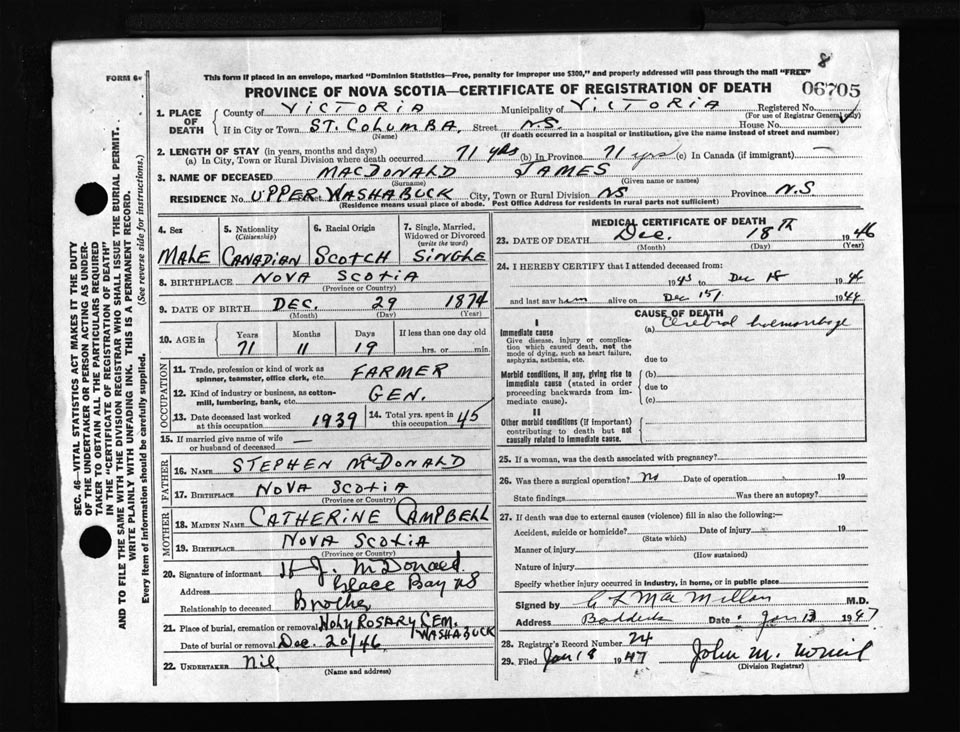 8
FORM 6
This form if placed in an envelope, marked "Dominion Statistics—Free, penalty for improper use $300," and properly addressed will pass through the mail "FREE"
PROVINCE OF NOVA SCOTIA—CERTIFICATE OF REGISTRATION OF DEATH 06705
1. PLACE OF DEATH County of VICTORIA Municipality of VICTORIA Registered No.
(For use of Registrar General only)
If in City or Town ST. COLUMBA, Street N.S. House No.
(Name) (If death occurred in a hospital or institution, give the name instead of street and number)
2. LENGTH OF STAY (in years, months and days)
(a) In City, Town or Rural Division where death occurred 71 yrs (b) In Province 71 yrs (c) In Canada (if immigrant) —
3. NAME OF DECEASED MACDONALD JAMES
(Surname) (Given name or names)
RESIDENCE No. UPPER WASHABUCK City, Town or Rural Division NS Province N.S
(Residence means usual place of abode. Post Office Address for residents in rural parts not sufficient)
4. Sex
MALE
5. Nationality
(Citizenship)
CANADIAN
6. Racial Origin
SCOTCH
7. Single, Married, Widowed or Divorced
(write the word)
SINGLE
8. BIRTHPLACE NOVA SCOTIA
(Province or Country)
9. DATE OF BIRTH DEC. 29 1874
(Month) (Day) (Year)
10. AGE in Years Months Days If less than one day old
71 11 19 hrs. or min.
OCCUPATION
11. Trade, profession or kind of work as spinner, teamster, office clerk, etc. FARMER
12. Kind of industry or business, as cotton-mill, lumbering, bank, etc. GEN.
13. Date deceased last worked at this occupation 1939
14. Total yrs. spent in this occupation 45
15. If married give name of wife or husband of deceased —
FATHER
16. NAME STEPHEN McDONALD
17. BIRTHPLACE NOVA SCOTIA
(Province or Country)
MOTHER
18. MAIDEN NAME CATHERINE CAMPBELL
19. BIRTHPLACE NOVA SCOTIA
(Province or Country)
20. Signature of informant H J. McDonald.
Address Glace Bay NS
Relationship to deceased Brother
21. Place of burial, cremation or removal HOLY ROSARY CEM. WASHABUCK
Date of burial or removal Dec. 20/46
22. UNDERTAKER Nil
(Name and address)
MEDICAL CERTIFICATE OF DEATH
23. DATE OF DEATH Dec. 18TH 1946
(Month) (Day) (Year)
24. I HEREBY CERTIFY that I attended deceased from:
1943 to Dec 18 1946
and last saw him alive on Dec 15 1946
CAUSE OF DEATH
I
Immediate cause (a) Cerebral haemorrhage
Give disease, injury or complication which caused death, not the mode of dying, such as heart failure, asphyxia, asthenia, etc.
due to
Morbid conditions, if any, giving rise to immediate cause (stated in order proceeding backwards from immediate cause).
(b)
due to
(c)
II
Other morbid conditions (if important) contributing to death but not causally related to immediate cause.
25. If a woman, was the death associated with pregnancy?
26. Was there a surgical operation? No Date of operation 19
State findings Was there an autopsy?
27. If death was due to external causes (violence) fill in also the following:
Accident, suicide or homicide? Date of injury 19
(State which)
Manner of injury
(How sustained)
Nature of injury
Specify whether injury occurred in industry, in home, or in public place
Signed by C L MacMillan M.D.
Address Baddeck Date Jan 13 1947
28. Registrar's Record Number 24
29. Filed Jan 18 1947 John M. McNeil
(Division Registrar)
SEC. 46—VITAL STATISTICS ACT MAKES IT THE DUTY
OF THE UNDERTAKER OR PERSON ACTING AS UNDER-
TAKER TO OBTAIN ALL THE PARTICULARS REQUIRED
IN THE "CERTIFICATE OF REGISTRATION OF DEATH"
AND TO FILE THE SAME WITH THE DIVISION REGISTRAR WHO SHALL ISSUE THE BURIAL PERMIT.
WRITE PLAINLY WITH UNFADING INK. THIS IS A PERMANENT RECORD.
Every item of information should be carefully supplied. (See reverse side for instructions.)